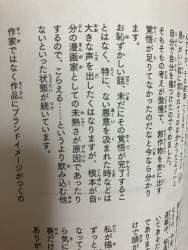 そもそもの考えが傲慢で、創作物を世に出す
覚悟が足りてなかったのだなと今なら分かり
ます。
お恥ずかしい話、未だにその覚悟が完了するこ
とはなく、特に、ない悪意を汲まれた時などは
大きな声を出したくはなりますが、根本が自
分＝漫画家としての未熟さが原因であったり
するので、こらえる……というより飲み込む他
ないといった状態が続いています。
作家ではなく作品にブランドイメージがつくの
私が描
ずっと